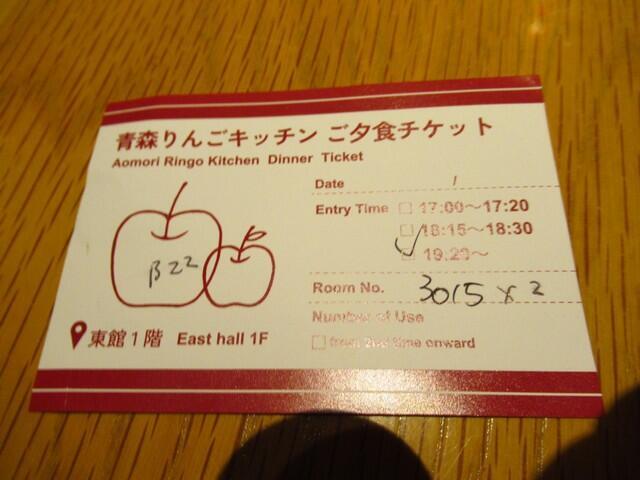 青森りんごキッチン ご夕食チケット
Aomori Ringo Kitchen Dinner Ticket
Date /
Entry Time □ 17:00～17:20
□ 18:15～18:30
☑ 19:20～
B22
Room No. 3015 x 2
Number of Use
□ from 2nd time onward
東館1階 East hall 1F